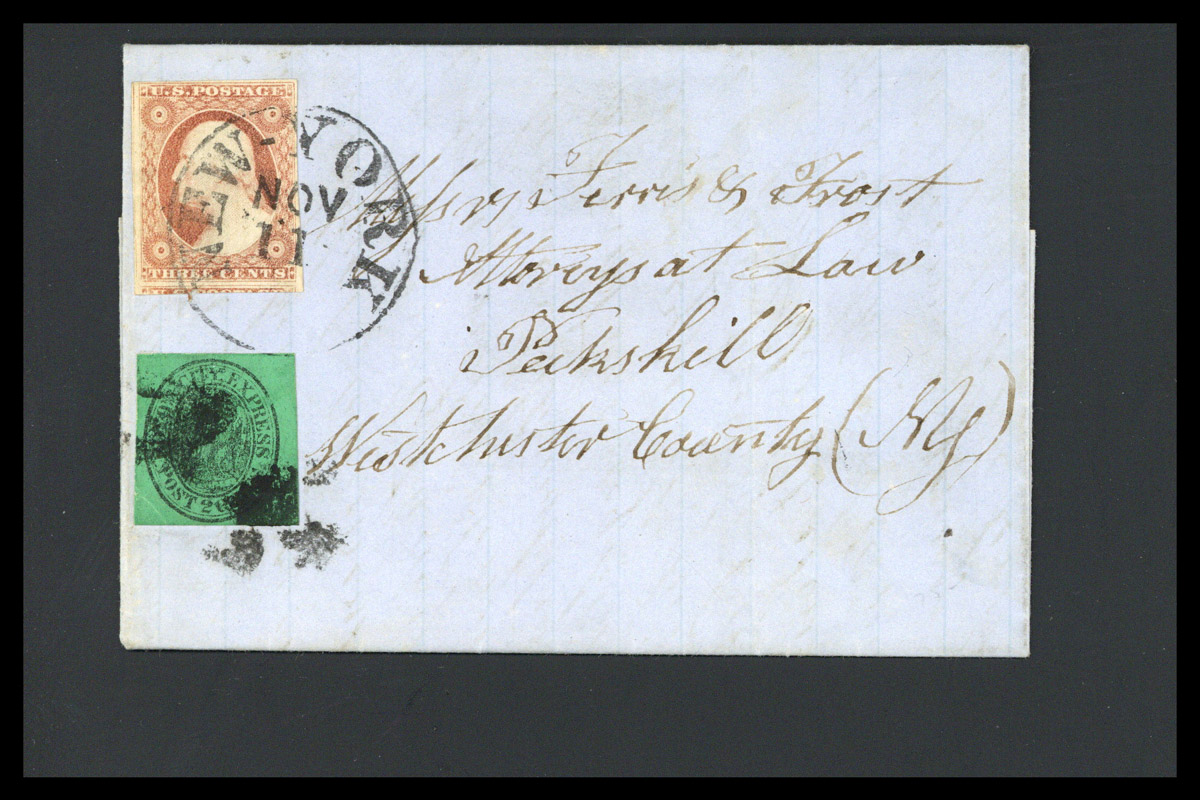 U.S. POSTAGE
THREE CENTS
NEW-YORK
NOV
11
Messrs Ferris & Frost
Attorneys at Law
Peekskill
Westchester County (NY)
CITY EXPRESS
POST 2C